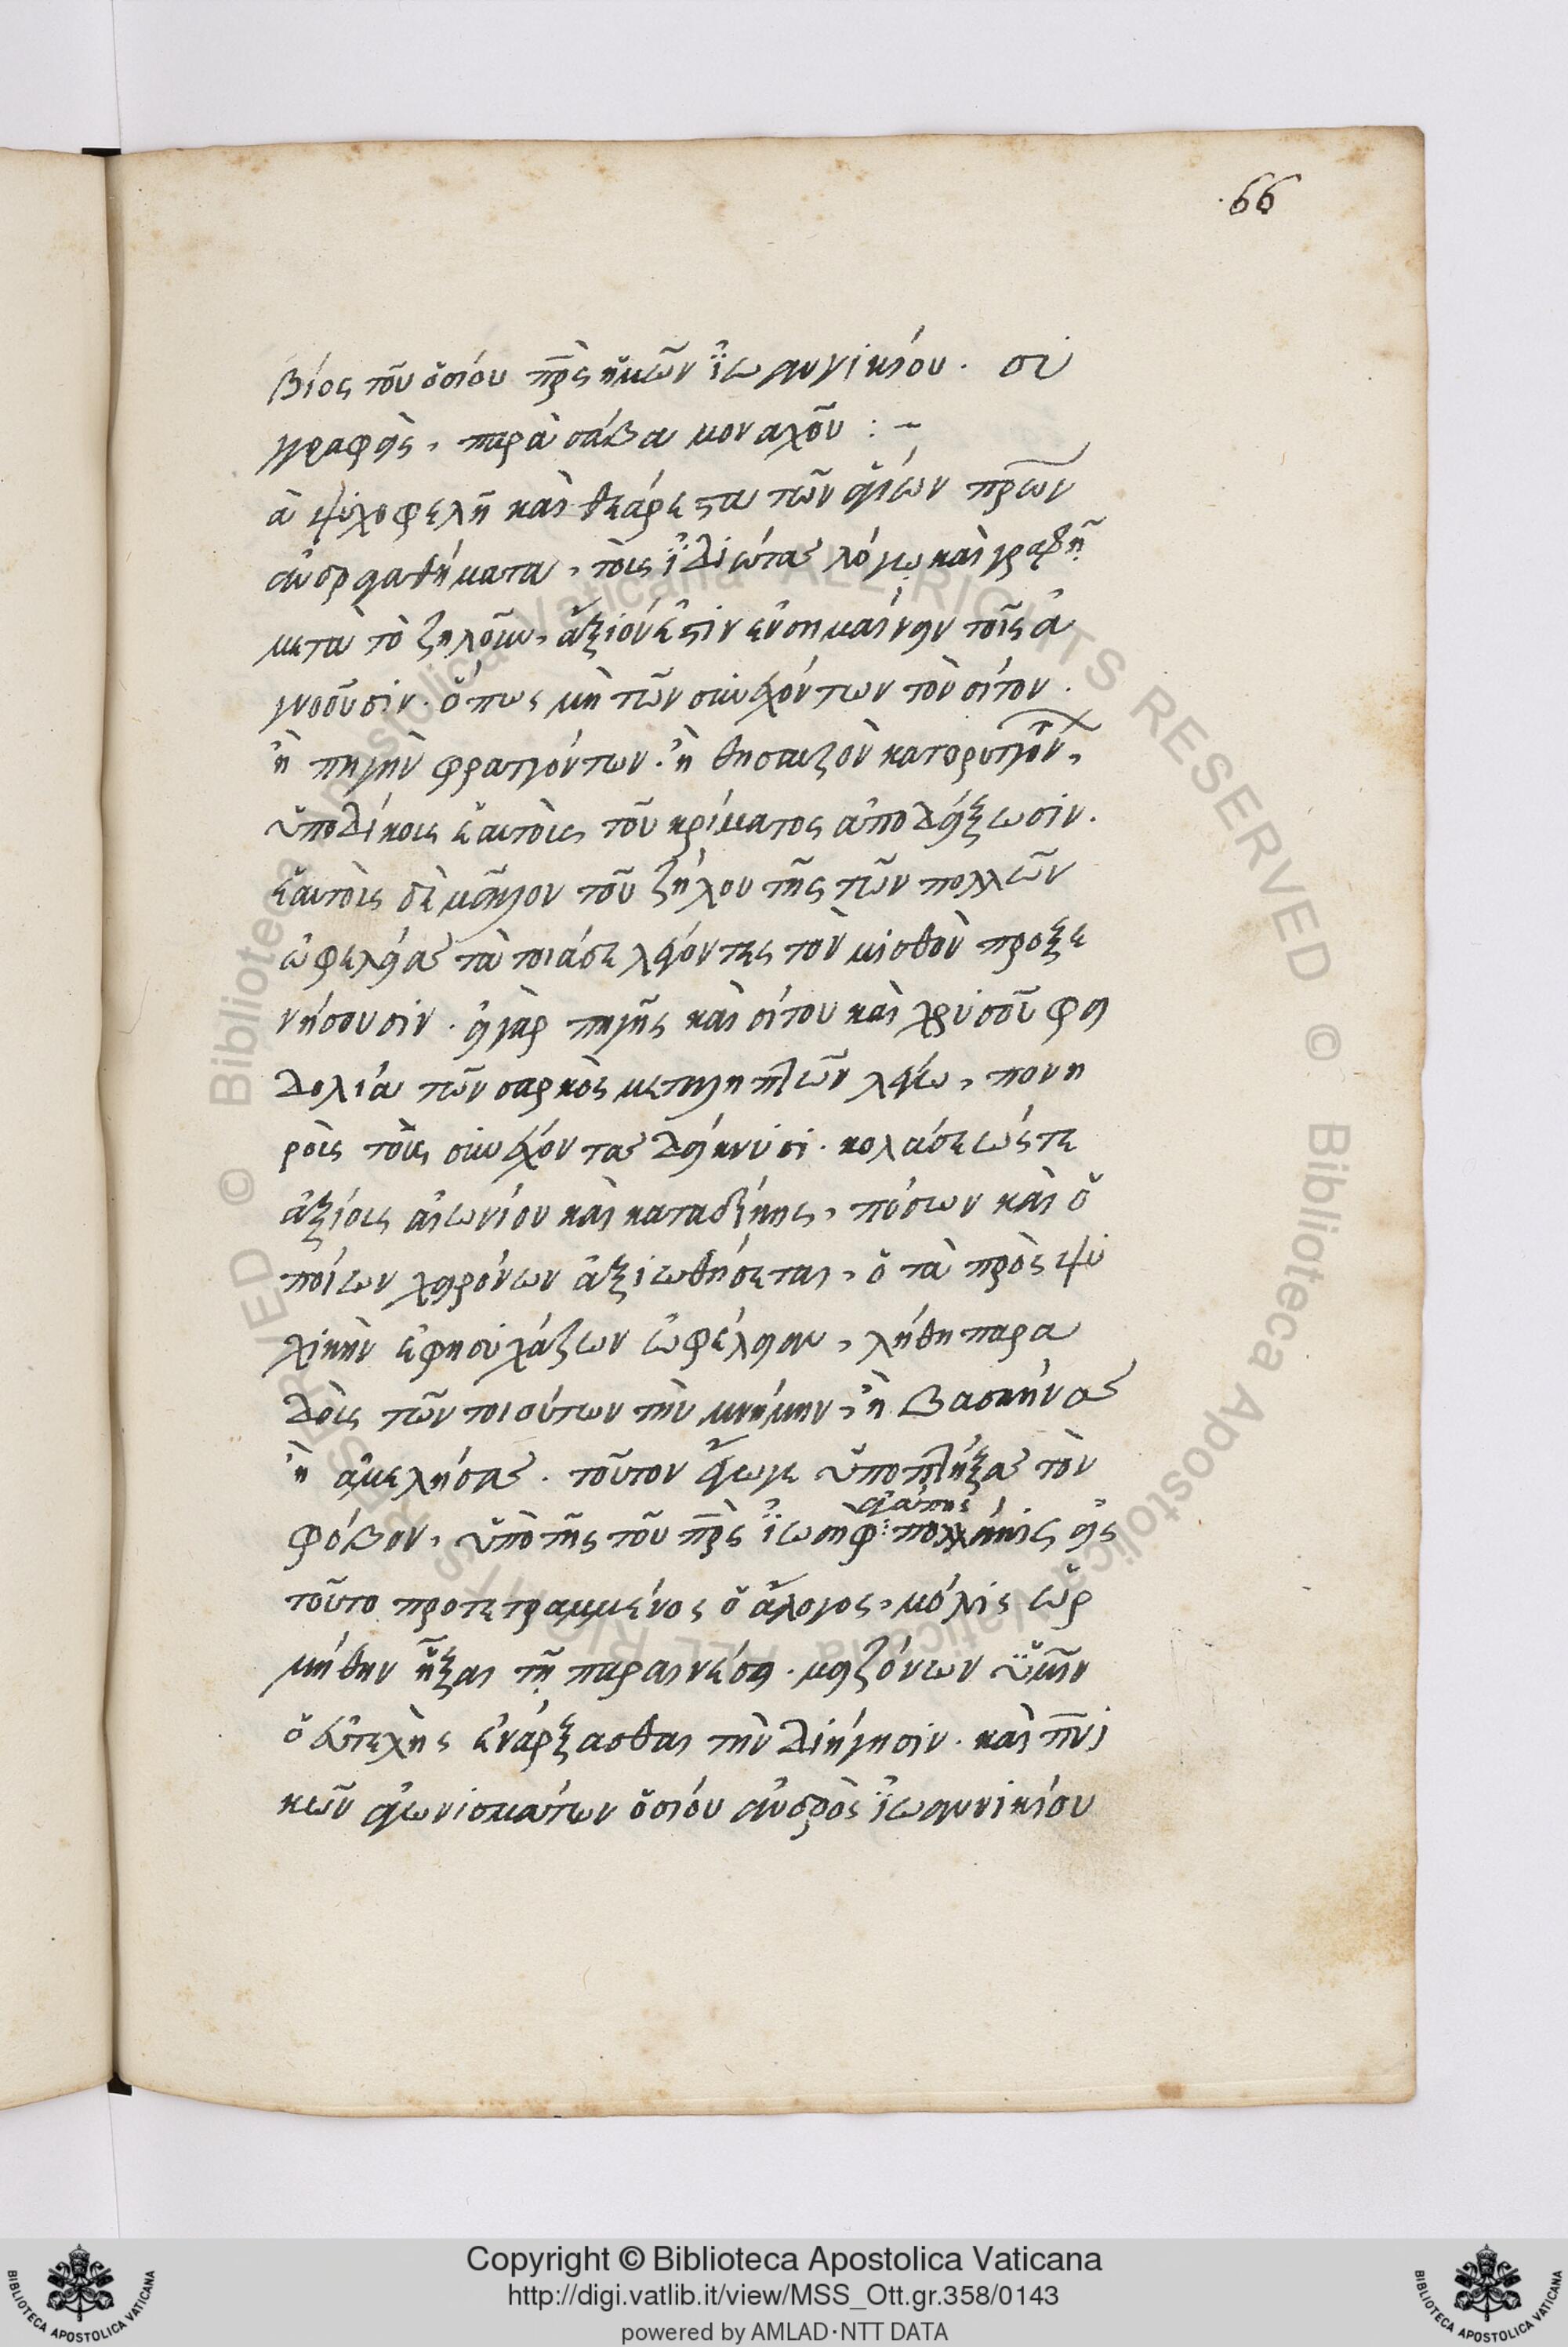 .66
βίος τοῦ ὁσίου πρς ἡμῶν ἰωαννικίου. συ
γραφεὶς, παρὰ σάβα μοναχοῦ :~
ὰ ψυχοφελῆ καὶ θεάρεστα τῶν ἁγίων πρων
ἀνδραγαθήματα, τοὺς ἰδιώτας λόγῳ καὶ γραφῆ
μετὰ τὸ ζηλοῦν, ἄξιόν ἐστιν ἐνσημαίνειν τοῖς ἀ
γνοοῦσιν. ὅπως μὴ τῶν συνεχόντων τὸν σίτον.
ἢ πηγὴν φραττόντων. ἢ θησαυρὸν κατορυττόντ,
ὑποδίκους ἑαυτοὺς τοῦ κρίματος ἀποδείξωσιν.
ἑαυτοὺς δὲ μᾶλλον τοῦ ζήλου τῆς τῶν πολλῶν
ὠφελείας τὰ τοιάδε λέγοντες τὸν μισθὸν προξε
νήσουσιν. εἰ γὰρ πηγῆς καὶ σίτου καὶ χρυσοῦ φει
δολία τῶν σαρκὸς μεταληπτῶν λέγω, πονη
ροὺς τοὺς συνέχοντας δείκνυσι. κολάσεώς τε
ἀξίους αἰωνίου καὶ καταδίκης, πόσων καὶ ὁ
ποίων χειρόνων ἀξιωθήσεται, ὁ τὰ πρὸς ψυ
χικὴν ἐφησυχάζων ὠφέλειαν, λήθη παρα
δοὺς τῶν τοιούτων τὴν μνήμην, ἢ βασκήνας
ἢ ἀμελήσας. τοῦτον ἔγωγε ὑποπτήξας τὸν
φόβον, ὑπὸ τῆς τοῦ πρς ἰωσὴφ: ἀγάπης πολλάκις εἰς
τοῦτο προτετραμμένος ὁ ἄλογος, μόλις ὡρ
μήθην εἶξαι τῇ παραινέσει. μειζόνων ὑμῖν
ὁ εὐτελὴς ἐνάρξασθαι τὴν διήγησιν. καὶ πνι
κῶν ἀγωνισμάτων ὁσίου ἀνδρὸς ἰωαννικίου
© Biblioteca Apostolica Vaticana ALL RIGHTS RESERVED © Biblioteca Apostolica Vaticana ALL RIGHTS RESERVED
Copyright © Biblioteca Apostolica Vaticana
http://digi.vatlib.it/view/MSS_Ott.gr.358/0143
powered by AMLAD·NTT DATA
BIBLIOTECA APOSTOLICA VATICANA
BIBLIOTECA APOSTOLICA VATICANA